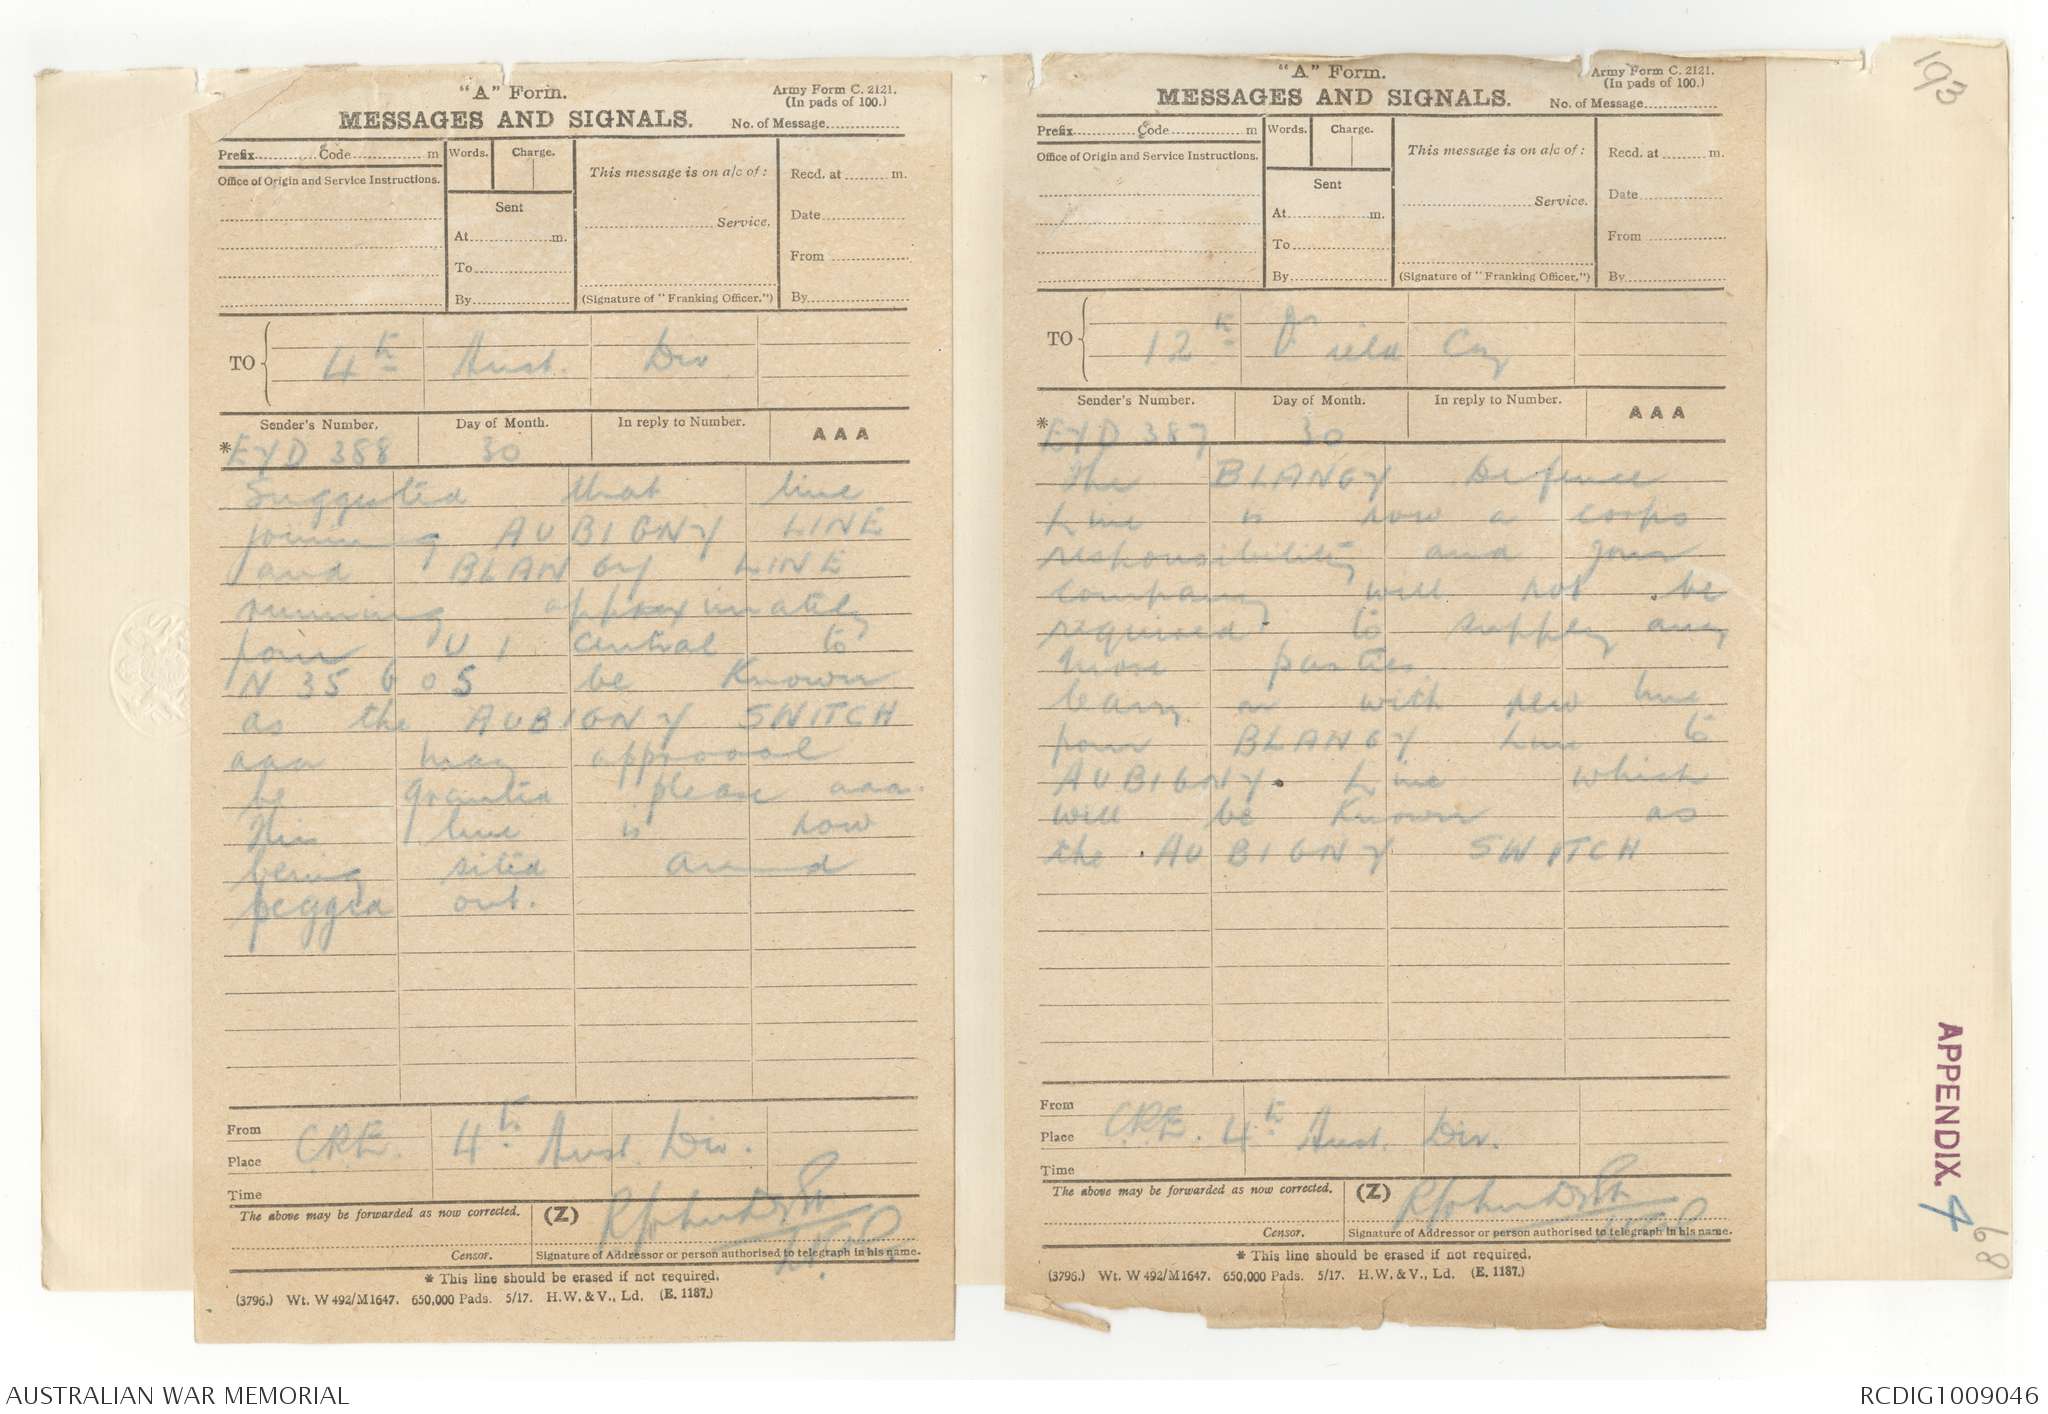 "A" Form.
Army Form C. 2121.
(In pads of 100.)
MESSAGES AND SIGNALS.
No. of Message
Prefix Code m
Words. Charge.
This message is on a/c of:
Recd. at m.
Office of Origin and Service Instructions.
Sent
Service.
Date
At m.
From
To
By
(Signature of "Franking Officer.")
By
TO
4th Aust. Div
Sender's Number.
Day of Month.
In reply to Number.
AAA
* EYD 388 30
Suggested that line
joining AUBIGNY LINE
and BLANGY LINE
running approximately
from U 1 central to
N 35 b 0 5 be known
as the AUBIGNY SWITCH
aaa may approval
be granted please aaa.
This line is now
being sited and
pegged out.
From
Place
C.R.E. 4th Aust. Div.
Time
The above may be forwarded as now corrected.
(Z)
Censor.
Signature of Addressor or person authorised to telegraph in his name.
* This line should be erased if not required.
(3796.) Wt. W 492/M1647. 650,000 Pads. 5/17. H.W. & V., Ld. (E. 1187.)
"A" Form.
Army Form C. 2121.
(In pads of 100.)
MESSAGES AND SIGNALS.
No. of Message
Prefix Code m
Words. Charge.
This message is on a/c of:
Recd. at m.
Office of Origin and Service Instructions.
Sent
Service.
Date
At m.
From
To
By
(Signature of "Franking Officer.")
By
TO
12th Field Coy
Sender's Number.
Day of Month.
In reply to Number.
AAA
* EYD 387 30
The BLANGY Defence
Line is now a corps
responsibility and your
company will not be
required to supply any
more parties.
Carry on with new line
from BLANGY Line to
AUBIGNY Line which
will be known as
the AUBIGNY SWITCH
From
Place
C.R.E. 4th Aust. Div.
Time
The above may be forwarded as now corrected.
(Z)
Censor.
Signature of Addressor or person authorised to telegraph in his name.
* This line should be erased if not required.
(3796.) Wt. W 492/M1647. 650,000 Pads. 5/17. H.W. & V., Ld. (E. 1187.)
193
APPENDIX. 4
68
AUSTRALIAN WAR MEMORIAL
RCDIG1009046